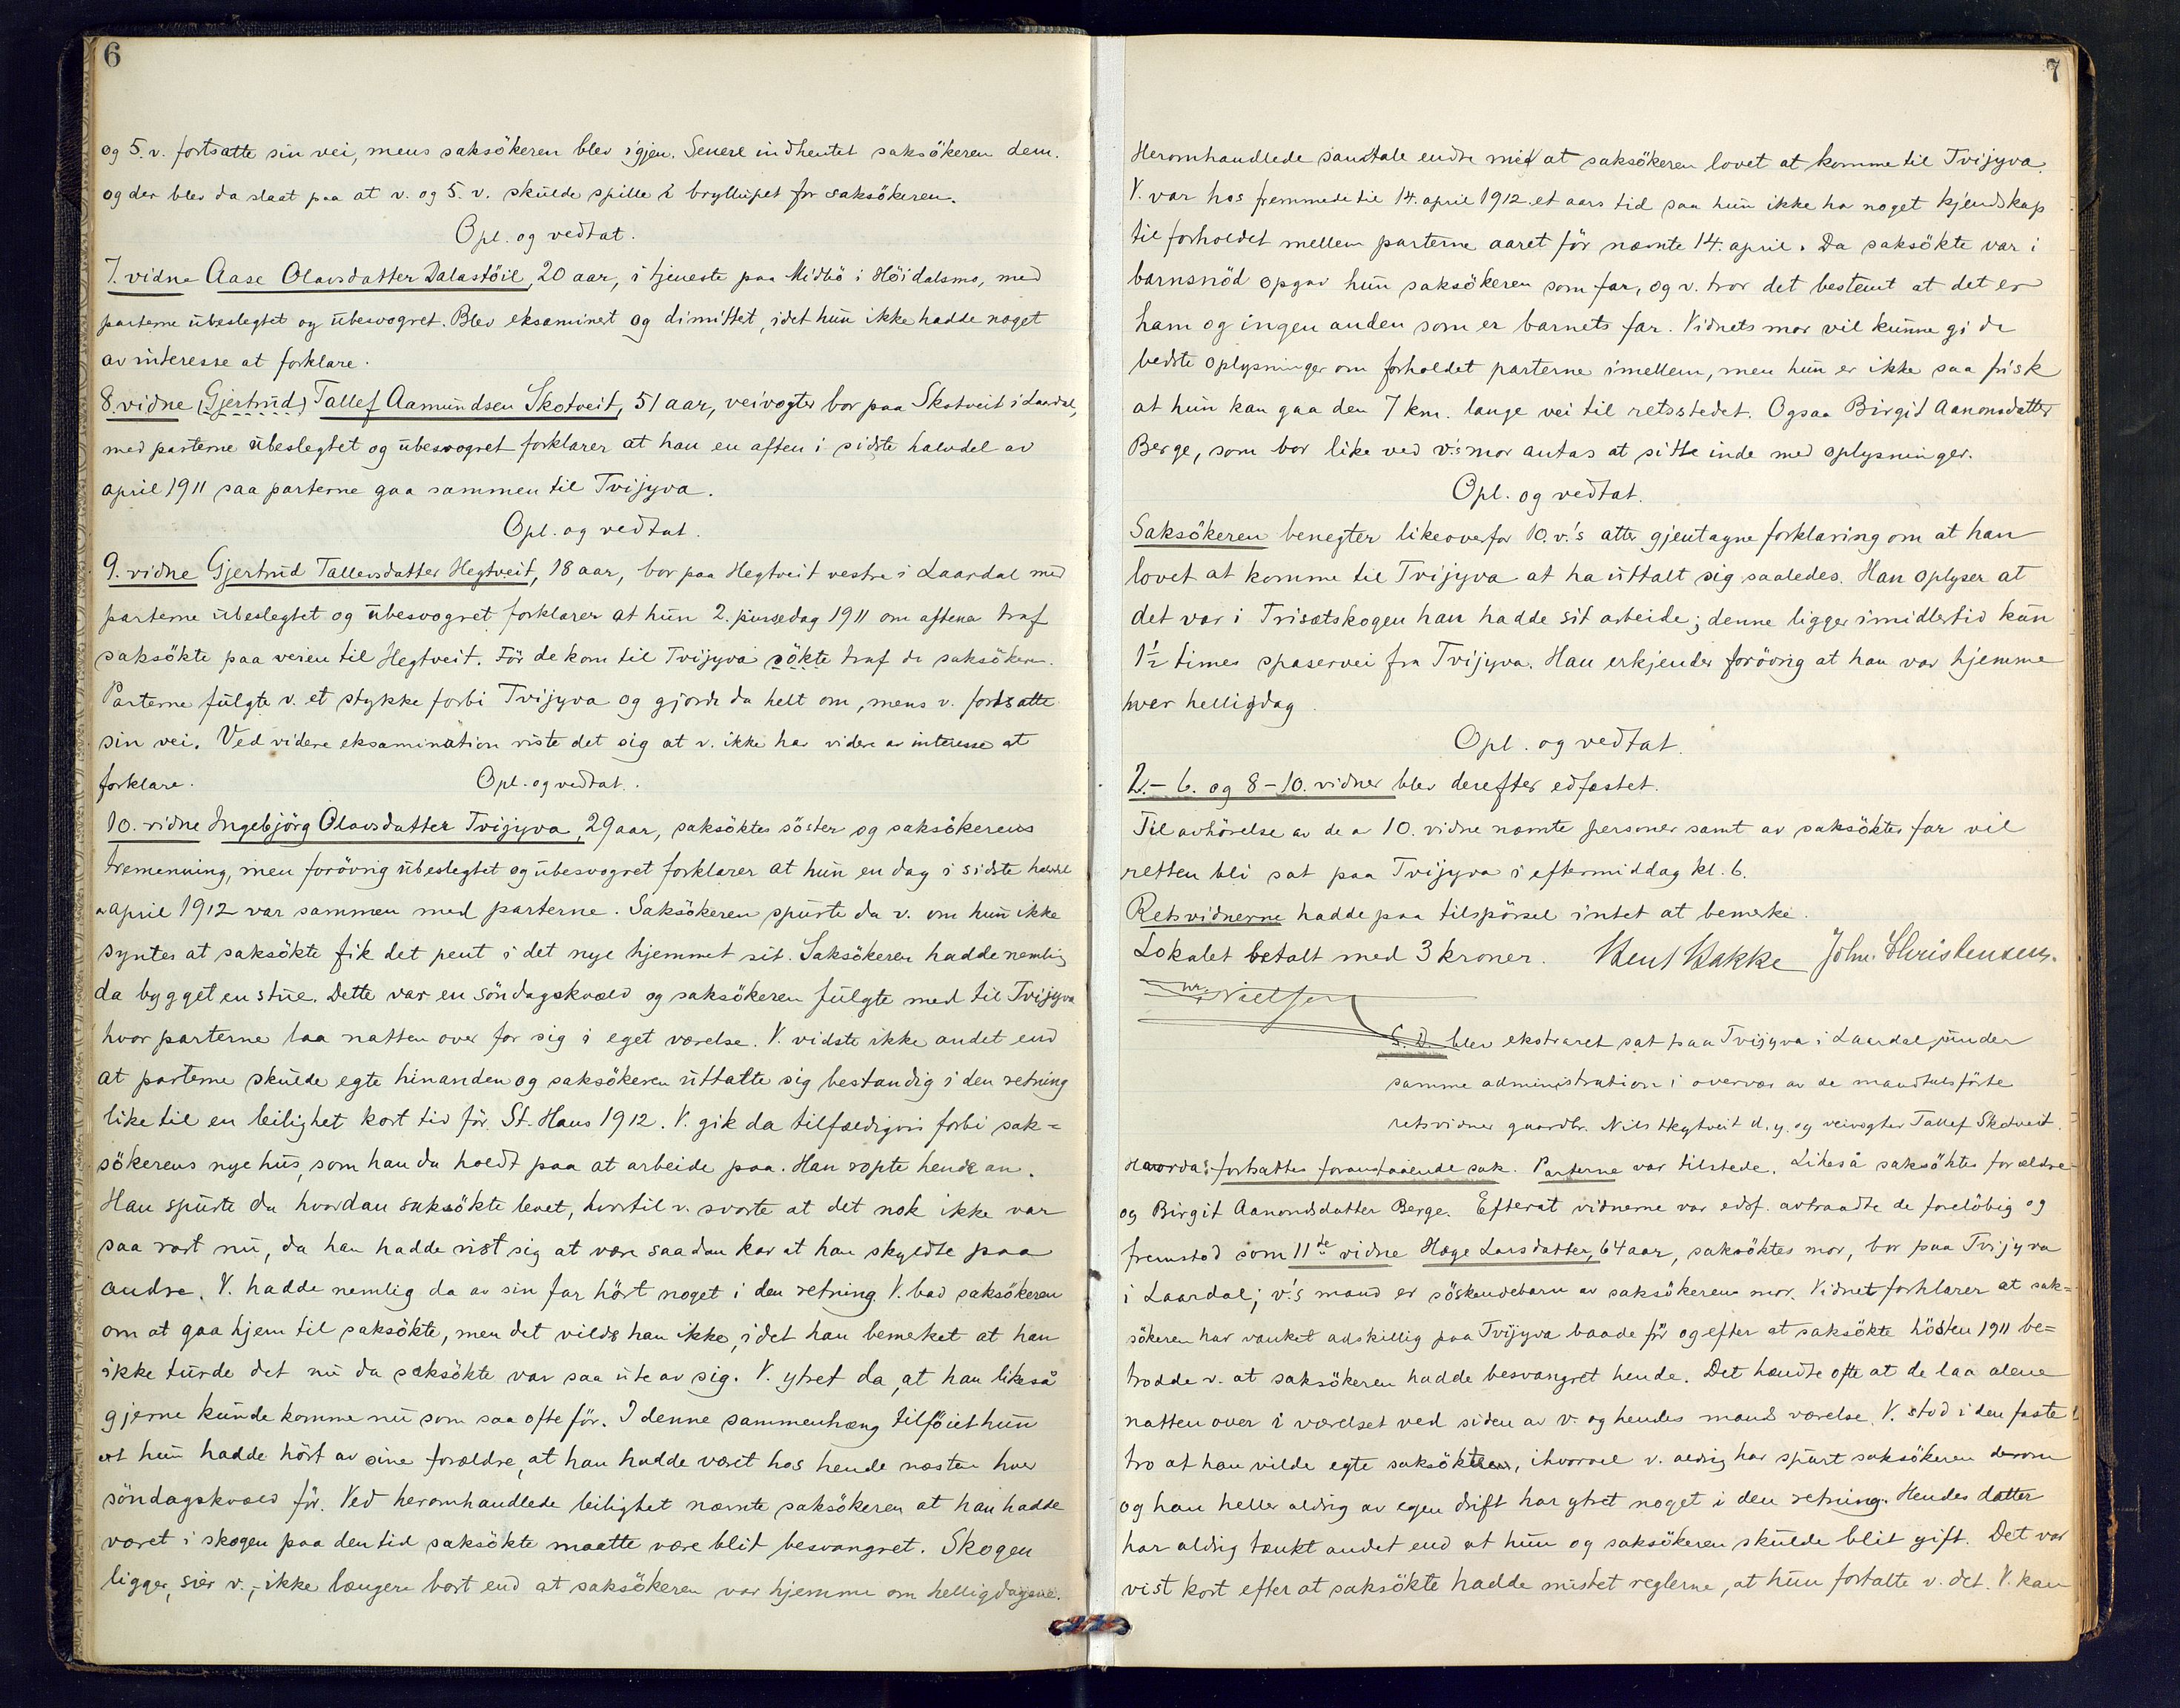 6
og 5. v. fortsatte sin vei, mens saksökeren blev igjen. Senere indhentet saksökeren dem.
og der blev da slaat paa at v. og 5. v. skulde spille i bryllupet for saksökeren.
Opl. og vedtat.
7. vidne Aase Olavsdatter Dalastöil, 20 aar, i tjeneste paa Midbö i Höidalsmo, med
parterne ubeslegtet og ubesvogret. Blev eksaminert og dimittet, idet hun ikke hadde noget
av interesse at forklare.
8. vidne (Gjertrud) Tallef Aamundsen Skotveit, 51 aar, veivogter bor paa Skotveit i Laardal,
med parterne ubeslegtet og ubesvogret forklarer at han en aften i sidste halvdel av
april 1911 saa parterne gaa sammen til Tvijyva.
Opl. og vedtat.
9. vidne Gjertrud Tallevsdatter Hegtveit, 18 aar, bor paa Hegtveit vestre i Laardal med
parterne ubeslegtet og ubesvogret forklarer at hun 2. pinsedag 1911 om aftena traf
saksökte paa veien til Hegtveit. För de kom til Tvijyva sökte traf de saksökeren.
Parterne fulgte v. et stykke forbi Tvijyva og gjorde da helt om, mens v. fortsatte
sin vei. Ved videre eksamination viste det sig at v. ikke har videre av interesse at
forklare. Opl. og vedtat.
10. vidne Ingebjörg Olavsdatter Tvijyva, 29 aar, saksöktes söster og saksökerens
tremenning, men forövrig ubeslegtet og ubesvogret forklarer at hun en dag i sidste halvdel
av april 1912 var sammen med parterne. Saksökeren spurte da v. om hun ikke
syntes at saksökte fik det pent i det nye hjemmet sit. Saksökeren hadde nemlig
da bygget en stue. Dette var en söndagskvæld og saksökeren fulgte med til Tvijyva
hvor parterne laa natten over for sig i eget værelse. V. vidste ikke andet end
at parterne skulde egte hinanden og saksökeren uttalte sig bestandig i den retning
like til en leilighet kort tid för St. Hans 1912. V. gik da tilfældigvis forbi sak=
sökerens nye hus, som han da holdt paa at arbeide paa. Han ropte hende an.
Han spurte da hvordan saksökte levet, hvortil v. svarte at det nok ikke var
saa rart nu, da han hadde vist sig at være saadan kar at han skyldte paa
andre. V. hadde nemlig da av sin far hört noget i den retning. V. bad saksökeren
om at gaa hjem til saksökte, men det vilde han ikke, idet han bemerket at han
ikke turde det nu da saksökte var saa ute av sig. V. ytret da, at han likeså
gjerne kunde komme nu som saa ofte för. I denne sammenhæng tilföiet hun
at hun hadde hört av sine forældre, at han hadde været hos hende næsten hver
söndagskvæld för. Ved heromhandlede leilighet nævnte saksökeren at han hadde
været i skogen paa den tid saksökte maatte være blit besvangret. Skogen
ligger, sier v., ikke længere bort end at saksökeren var hjemme om helligdagene.
7
Heromhandlede samtale endte med at saksökeren lovet at komme til Tvijyva.
V. var hos fremmede til 14. april 1912 et aars tid saa hun ikke har noget kjendskap
til forholdet mellem parterne aaret för nævnte 14. april. Da saksökte var i
barnsnöd opgav hun saksökeren som far, og v. tror det bestemt at det er
ham og ingen anden som er barnets far. Vidnets mor vil kunne gi de
bedste oplysninger om forholdet parterne imellem, men hun er ikke saa frisk
at hun kan gaa den 7 km. lange vei til retsstedet. Ogsaa Birgit Aanonsdatter
Berge, som bor like ved v's mor antas at sitte inde med oplysninger.
Opl. og vedtat.
Saksökeren benegter likeoverfor 10. v.'s atter gjentagne forklaring om at han
lovet at komme til Tvijyva at ha uttalt sig saaledes. Han oplyser at
det var i Trisætskogen han hadde sit arbeide; denne ligger imidlertid kun
1½ times spaservei fra Tvijyva. Han erkjender forövrig at han var hjemme
hver helligdag.
Opl. og vedtat.
2.- 6. og 8-10. vidner blev derefter edfæstet.
Til avhörelse av de av 10. vidne nævnte personer samt av saksöktes far vil
retten bli sat paa Tvijyva i eftermiddag kl. 6.
Retsvidnerne hadde paa tilspörsel intet at bemerke.
Lokalet betalt med 3 kroner. Knut Bakke John. Christensen.
Nielsen
S. D. blev ekstraret sat paa Tvijyva i Laardal under
samme administration i overvær av de mandtalsförte
retsvidner gaardbr. Nils Hegtveit d. y. og veivogter Tallef Skotveit.
Hvorda: fortsattes foranstaaende sak. Parterne var tilstede. Likeså saksöktes forældre
og Birgit Aanondsdatter Berge. Efterat vidnerne var edsf. avtraadte de forelöbig og
fremstod som 11de vidne Hæge Larsdatter, 64 aar, saksöktes mor, bor paa Tvijyva
i Laardal; v.'s mand er söskendebarn av saksökerens mor. Vidnet forklarer at sak=
sökeren har vanket adskillig paa Tvijyva baade för og efter at saksökte hösten 1911 be=
trodde v. at saksökeren hadde besvangret hende. Det hændte ofte at de laa alene
natten over i værelset ved siden av v. og hendes mands værelse. V. stod i den faste
tro at han vilde egte saksökte, ihvorvel v. aldrig har spurt saksökeren derom
og han heller aldrig av egen drift har ytret noget i den retning. Hendes datter
har aldrig tænkt andet end at hun og saksökeren skulde blit gift. Det var
vist kort efter at saksökte hadde mistet reglerne, at hun fortalte v. det. V. kan